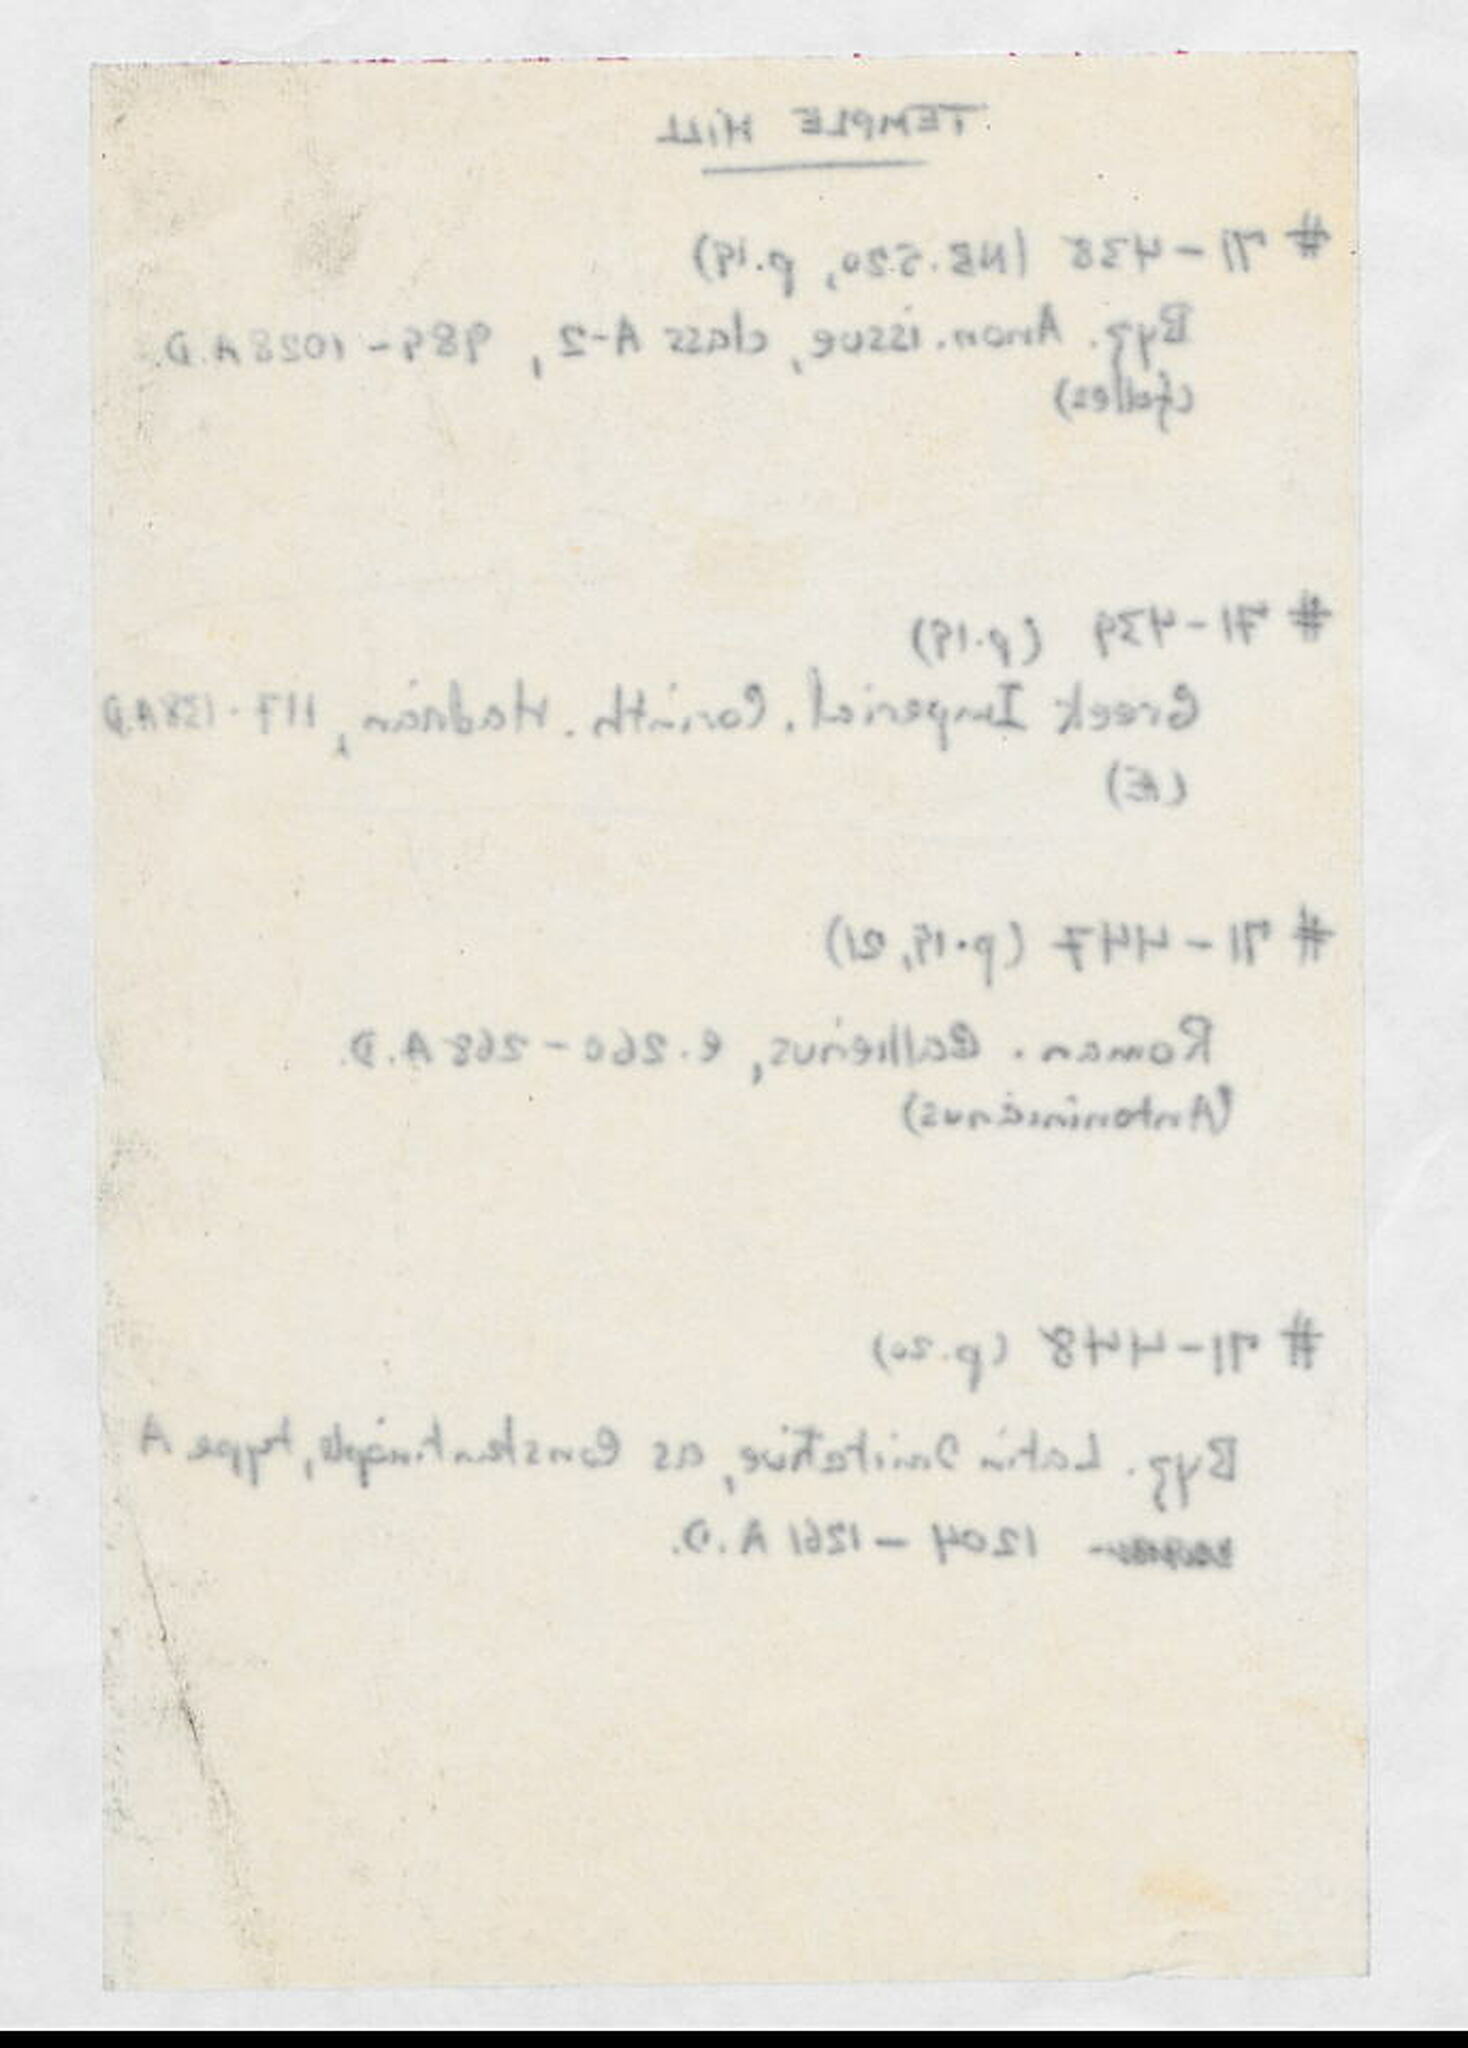 TEMPLE HILL
# 71-438 (NB.520, p.19)
Byz. Anon. issue, class A-2, 989-1028 A.D.
(folles)
# 71-439 (p.19)
Greek Imperial. Corinth. Hadrian, 117-138 A.D
(Æ)
# 71-447 (p.19, 21)
Roman. Gallienus, c.260-268 A.D.
(Antoninianus)
# 71-448 (p.20)
Byz. Latin Imitative, as Constantinople, type A
1204-1261 A.D.